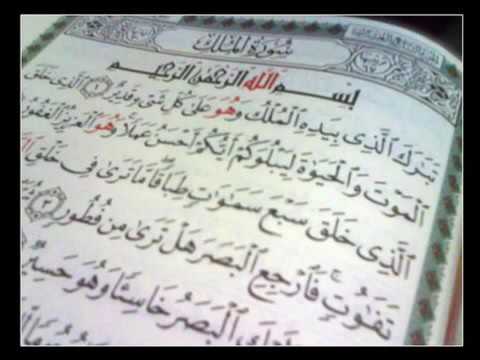 سُورَةُ المُلْكِ
بِسْمِ ٱللَّهِ ٱلرَّحْمَٰنِ ٱلرَّحِيمِ
تَبَٰرَكَ ٱلَّذِى بِيَدِهِ ٱلْمُلْكُ وَهُوَ عَلَىٰ كُلِّ شَىْءٍ قَدِيرٌ ١ ٱلَّذِى خَلَقَ
ٱلْمَوْتَ وَٱلْحَيَوٰةَ لِيَبْلُوَكُمْ أَيُّكُمْ أَحْسَنُ عَمَلًا وَهُوَ ٱلْعَزِيزُ ٱلْغَفُورُ
ٱلَّذِى خَلَقَ سَبْعَ سَمَٰوَٰتٍ طِبَاقًا مَّا تَرَىٰ فِى خَلْقِ
تَفَٰوُتٍ فَٱرْجِعِ ٱلْبَصَرَ هَلْ تَرَىٰ مِن فُطُورٍ ٣
ٱلْبَصَرُ خَاسِئًا وَهُوَ حَسِيرٌ